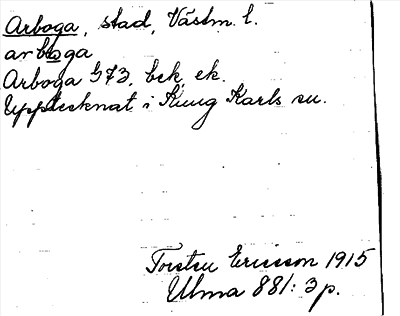 Arboga, stad, Västm. l.
arboga
Arboga G73, bek, ek.
Upptecknat i Kung Karls sn.
Torsten Ericsson 1915
Ulma 881: 3 p.